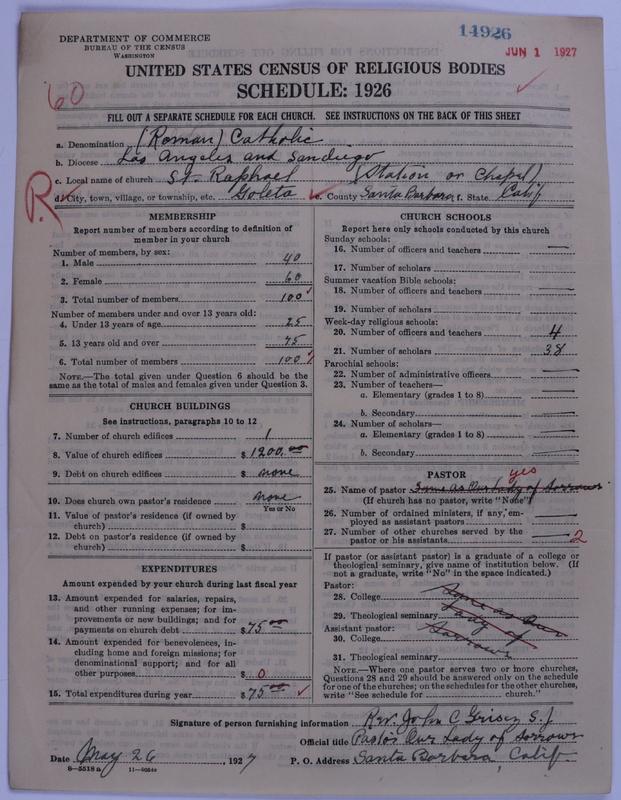 14926
DEPARTMENT OF COMMERCE
BUREAU OF THE CENSUS
WASHINGTON
JUN 1 1927
UNITED STATES CENSUS OF RELIGIOUS BODIES
SCHEDULE: 1926
60
FILL OUT A SEPARATE SCHEDULE FOR EACH CHURCH. SEE INSTRUCTIONS ON THE BACK OF THIS SHEET
a. Denomination (Roman) Catholic
b. Diocese Los Angeles and San diego
c. Local name of church St. Raphael (Station or Chapel)
R
d. City, town, village, or township, etc. Goleta e. County Santa Barbara f. State Calif
MEMBERSHIP
Report number of members according to definition of
member in your church
Number of members, by sex:
1. Male 40
2. Female 60
3. Total number of members 100
Number of members under and over 13 years old:
4. Under 13 years of age 25
5. 13 years old and over 75
6. Total number of members 100
NOTE.—The total given under Question 6 should be
same as the total of males and females given under Question 3.
CHURCH BUILDINGS
See instructions, paragraphs 10 to 12
7. Number of church edifices 1
8. Value of church edifices $ 1200.00
9. Debt on church edifices $ none
10. Does church own pastor's residence none
Yes or No
11. Value of pastor's residence (if owned by
church) $
12. Debt on pastor's residence (if owned by
church) $
EXPENDITURES
Amount expended by your church during last fiscal year
13. Amount expended for salaries, repairs,
and other running expenses; for im-
provements or new buildings; and for
payments on church debt $ 75.00
14. Amount expended for benevolences, in-
cluding home and foreign missions; for
denominational support; and for all
other purposes $ 0
15. Total expenditures during year $ 75.00
CHURCH SCHOOLS
Report here only schools conducted by this church
Sunday schools:
16. Number of officers and teachers
17. Number of scholars
Summer vacation Bible schools:
18. Number of officers and teachers
19. Number of scholars
Week-day religious schools:
20. Number of officers and teachers 4
21. Number of scholars 38
Parochial schools:
22. Number of administrative officers
23. Number of teachers—
a. Elementary (grades 1 to 8)
b. Secondary
24. Number of scholars—
a. Elementary (grades 1 to 8)
b. Secondary
PASTOR
yes
25. Name of pastor Same as Our Lady of Sorrows
(If church has no pastor, write "None")
26. Number of ordained ministers, if any, em-
ployed as assistant pastors
27. Number of other churches served by the
pastor or his assistants 2
If pastor (or assistant pastor) is a graduate of a college or
theological seminary, give name of institution below. (If
not a graduate, write "No" in the space indicated.)
Pastor:
28. College Same as Our
29. Theological seminary Lady of
Assistant pastor:
30. College Sorrows
31. Theological seminary
NOTE.—Where one pastor serves two or more churches,
Questions 28 and 29 should be answered only on the schedule
for one of the churches; on the schedules for the other churches,
write "See schedule for church."
Signature of person furnishing information Rev. John C Grisez S.J.
Official title Pastor Our Lady of Sorrows
Date May 26, 1927 P. O. Address Santa Barbara, Calif.
8—5518 a